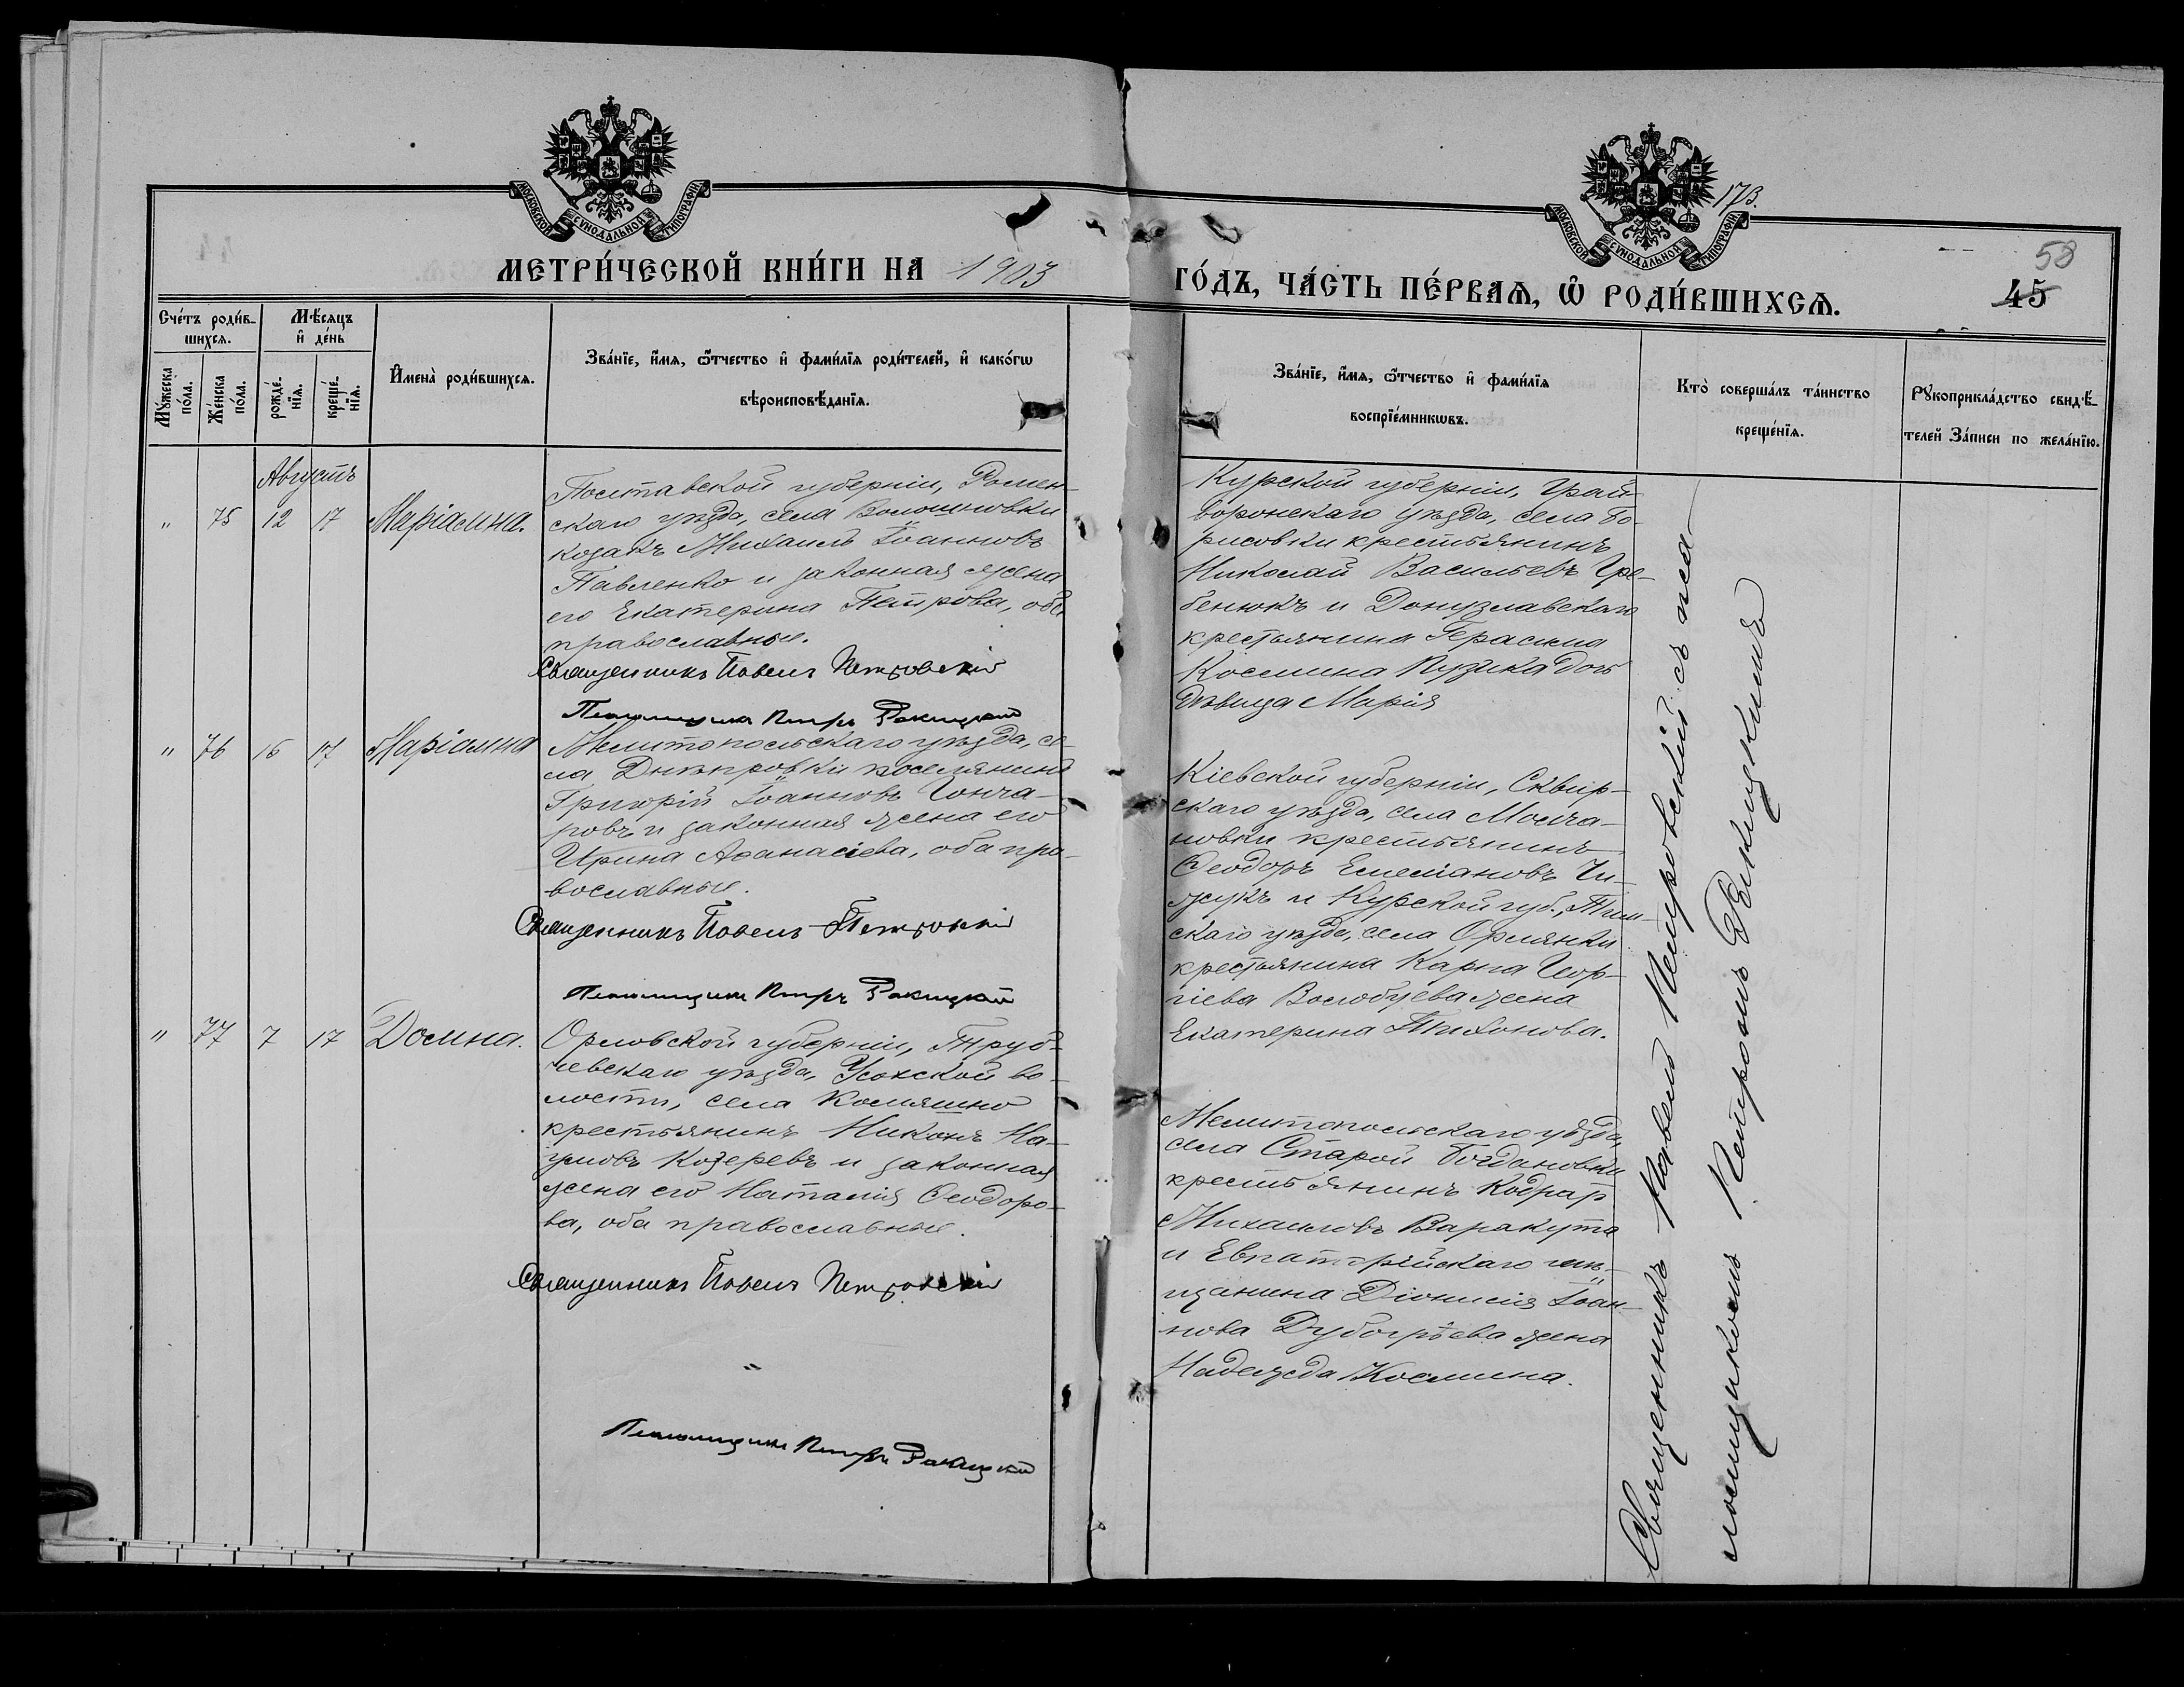 МОСКОВСКОЙ СѴНОДАЛЬНОЙ ТИПОГРАФІИ
МОСКОВСКОЙ СѴНОДАЛЬНОЙ ТИПОГРАФІИ
173.
58
45
МЕТРИ́ЧЕСКОЙ КНИ́ГИ НА 1903 ГО́ДЪ, ЧА́СТЬ ПЕ́РВАѦ, Ѽ РОДИ́ВШИХСѦ.
Сче́тъ роди́в-
шихсѧ.
Мѣ́сѧцъ
и҆ де́нь
Мꙋ́жеска по́ла.
Же́нска по́ла.
рожде́-
нїѧ.
креще́-
нїѧ.
И҆мена̀ роди́вшихсѧ.
Зва́нїе, и҆́мѧ, ѻ҆́тчество и҆ фами́лїѧ роди́телей, и҆ како́гѡ
вѣроисповѣ́данїѧ.
Зва́нїе, и҆́мѧ, ѻ҆́тчество и҆ фами́лїѧ
воспрїе́мникѡвъ.
Кто̀ соверша́лъ та́инство
креще́нїѧ.
Рꙋкоприкла́дство свидѣ́-
телей За́писи по жела́нїю.
Августъ
" 75 12 17 Маріамна.
Полтавской губерніи, Ромен-
скаго уѣзда, села Волошновки
козакъ Михаилъ Іоанновъ
Павленко и законная жена
его Екатерина Петрова, оба
православные.
Священникъ Павелъ Петровскій
Псаломщикъ Петръ Ракицкій
Курской губерніи, Грай-
воронскаго уѣзда, села Бо-
рисовки крестьянинъ
Николай Васильевъ Гре-
бенюкъ и Донузлавскаго
крестьянина Герасима
Космина Пузика дочь
дѣвица Марія
" 76 16 17 Маріамна
Мелитопольскаго уѣзда, се-
ла Днѣпровки поселянинъ
Григорій Іоанновъ Гонча-
ровъ и законная жена его
Ирина Аѳанасіева, оба пра-
вославные.
Священникъ Павелъ Петровскій
Псаломщикъ Петръ Ракицкій
Кіевской губерніи, Сквир-
скаго уѣзда, села Молча-
новки крестьянинъ
Ѳеодоръ Емеліановъ Чи-
жукъ и Курской губ., Тим-
скаго уѣзда, села Орлянки
крестьянина Карпа Геор-
гіева Волобуева жена
Екатерина Тихонова.
" 77 7 17 Домна.
Орловской губерніи, Труб-
чевскаго уѣзда, Усохской во-
лости, села
крестьянинъ Никонъ На-
умовъ Козеревъ и законная
жена его Наталія Ѳеодоро-
ва, оба православные.
Священникъ Павелъ Петровскій
"
Псаломщикъ Петръ Ракицкій
Мелитопольскаго уѣзда,
села Старой Богдановки
крестьянинъ Кодрат
Михаиловъ Варакута
и Евпаторійскаго мѣ-
щанина Діонисія Іоан-
нова Дубогрѣева жена
Надежда Космина.
Священникъ Павелъ Петровскій съ пса-
ломщикомъ Петромъ Ракицкимъ